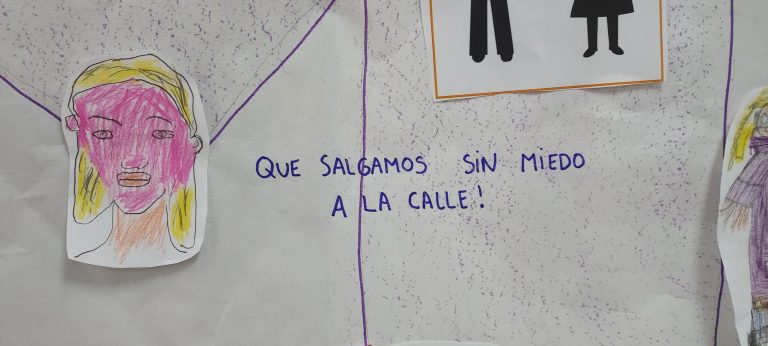 QUE SALGAMOS SIN MIEDO
A LA CALLE!